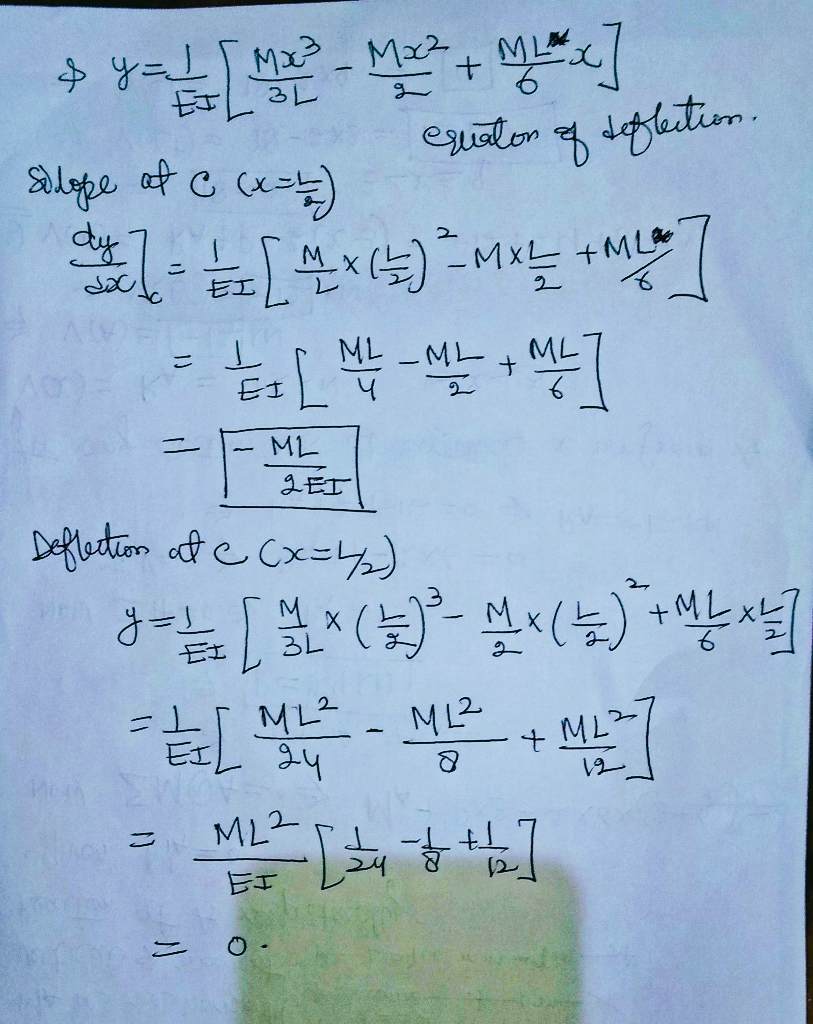 & y = 1/EI [ Mx³/3L - Mx²/2 + ML/6 x ]
equaton of deflection.
Slope at C (x = L/2)
dy/dx ]c = 1/EI [ M/L × (L/2)² - M × L/2 + ML/6 ]
= 1/EI [ ML/4 - ML/2 + ML/6 ]
= - ML/2EI
Deflection at C (x = L/2)
y = 1/EI [ M/3L × (L/2)³ - M/2 × (L/2)² + ML/6 × L/2 ]
= 1/EI [ ML²/24 - ML²/8 + ML²/12 ]
= ML²/EI [ 1/24 - 1/8 + 1/12 ]
= 0.